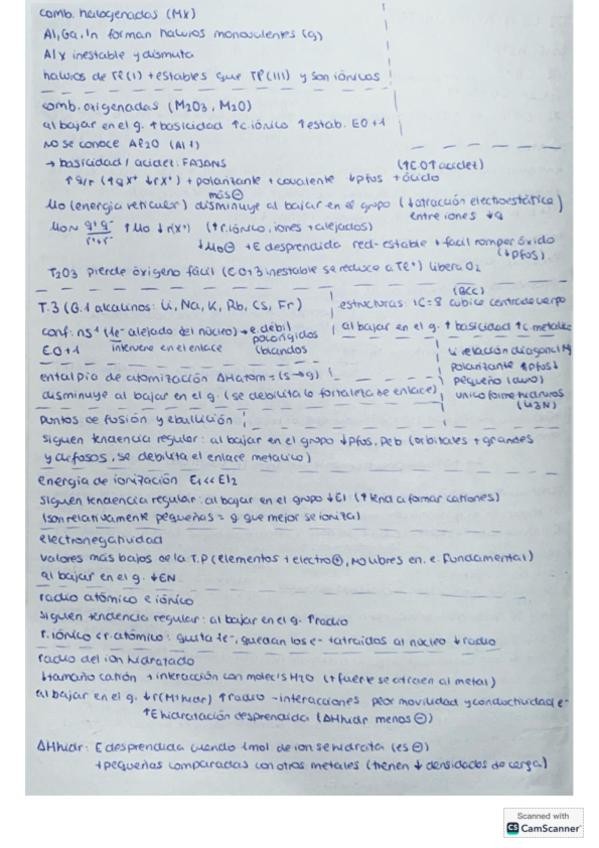 comb. halogenadas (MX)
Al, Ga, In forman haluros monovalentes (g)
AlX inestable y dismuta
haluros de Tl(I) + estables que Tl(III) y son iónicos
comb. oxigenadas (M2O3, M2O)
al bajar en el g. ↑ basicidad ↑ c. iónico ↑ estab. EO+1
NO se conoce Al2O (Al+)
→ basicidad / acidez: FAJANS (↑CO↑ acidez)
↑ q/r (↑q x+ ↓r x+) + polarizante + covalente ↓ pfus + ácido
más ⊖
Uo (energía reticular) disminuye al bajar en el grupo (↓ atracción electroestática)
entre iones ↓q
Uo ~ q+q-/r++r- ↑Uo ↓r(x+) (↑ r. iónico, iones + alejados)
↓Uo⊖ + E desprendida red - estable + fácil romper óxido
(↓pfus)
Tl2O3 pierde oxígeno fácil (EO+3 inestable se reduce a Tl+) libera O2
(BCC)
T.3 (G.1 alcalinos: Li, Na, K, Rb, Cs, Fr) estructuras IC=8 cúbico centro cuerpo
conf: ns1 (1e- alejado del núcleo) → e. débil al bajar en el g. ↑ basicidad ↑ c. metálic
polarigidos
EO+1 interviene en el enlace (blandos Li relación diagonal Mg
entalpía de atomización ΔHatom = (s→g) polarizante ↑ pfus ↓
pequeño (duro)
disminuye al bajar en el g. (se debilita la fortaleza de enlace) único forma nitruros
(Li3N)
puntos de fusión y ebullición
siguen tendencia regular: al bajar en el grupo ↓ pfus, peb (orbitales + grandes
y difusos, se debilita el enlace metálico)
energía de ionización EI1<<EI2
siguen tendencia regular: al bajar en el grupo ↓EI (↑ tend a formar cationes)
(son relativamente pequeñas = g que mejor se ioniza)
electronegatividad
valores más bajos de la T.P (elementos + electro⊕, NO libres en e. fundamental)
al bajar en el g. ↓EN
radio atómico e iónico
siguen tendencia regular: al bajar en el g. ↑ radio
r. iónico < r. atómico: quita 1e-, quedan los e- + atraídos al núcleo ↓ radio
radio del ion hidratado
↓ tamaño catión + interacción con molec's H2O (+ fuerte se atraen al metal)
al bajar en el g. ↓ r(M+hidr) ↑ radio - interacciones peor movilidad y conductividad e-
↑ E hidratación desprendida (ΔHhidr menos ⊖)
ΔHhidr: E desprendida cuando 1mol de ion se hidrata (es ⊖)
+ pequeñas comparadas con otros metales (tienen ↓ densidades de carga)
Scanned with
CS CamScanner